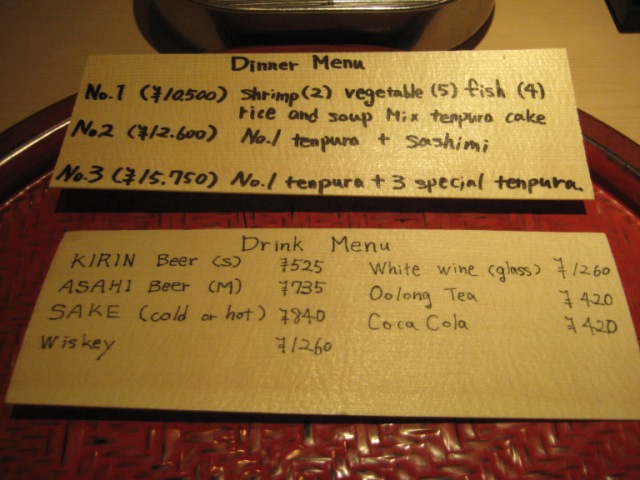 Dinner Menu
No.1 (¥10,500) shrimp (2) vegetable (5) fish (4)
rice and soup Mix tenpura cake
No.2 (¥12.600) No.1 tenpura + sashimi
No.3 (¥15,750) No.1 tenpura + 3 special tenpura.
Drink Menu
KIRIN Beer (s) ¥525
ASAHI Beer (M) ¥735
SAKE (cold or hot) ¥840
Wiskey ¥1260
White wine (glass) ¥1260
Oolong Tea ¥420
Coca Cola ¥420